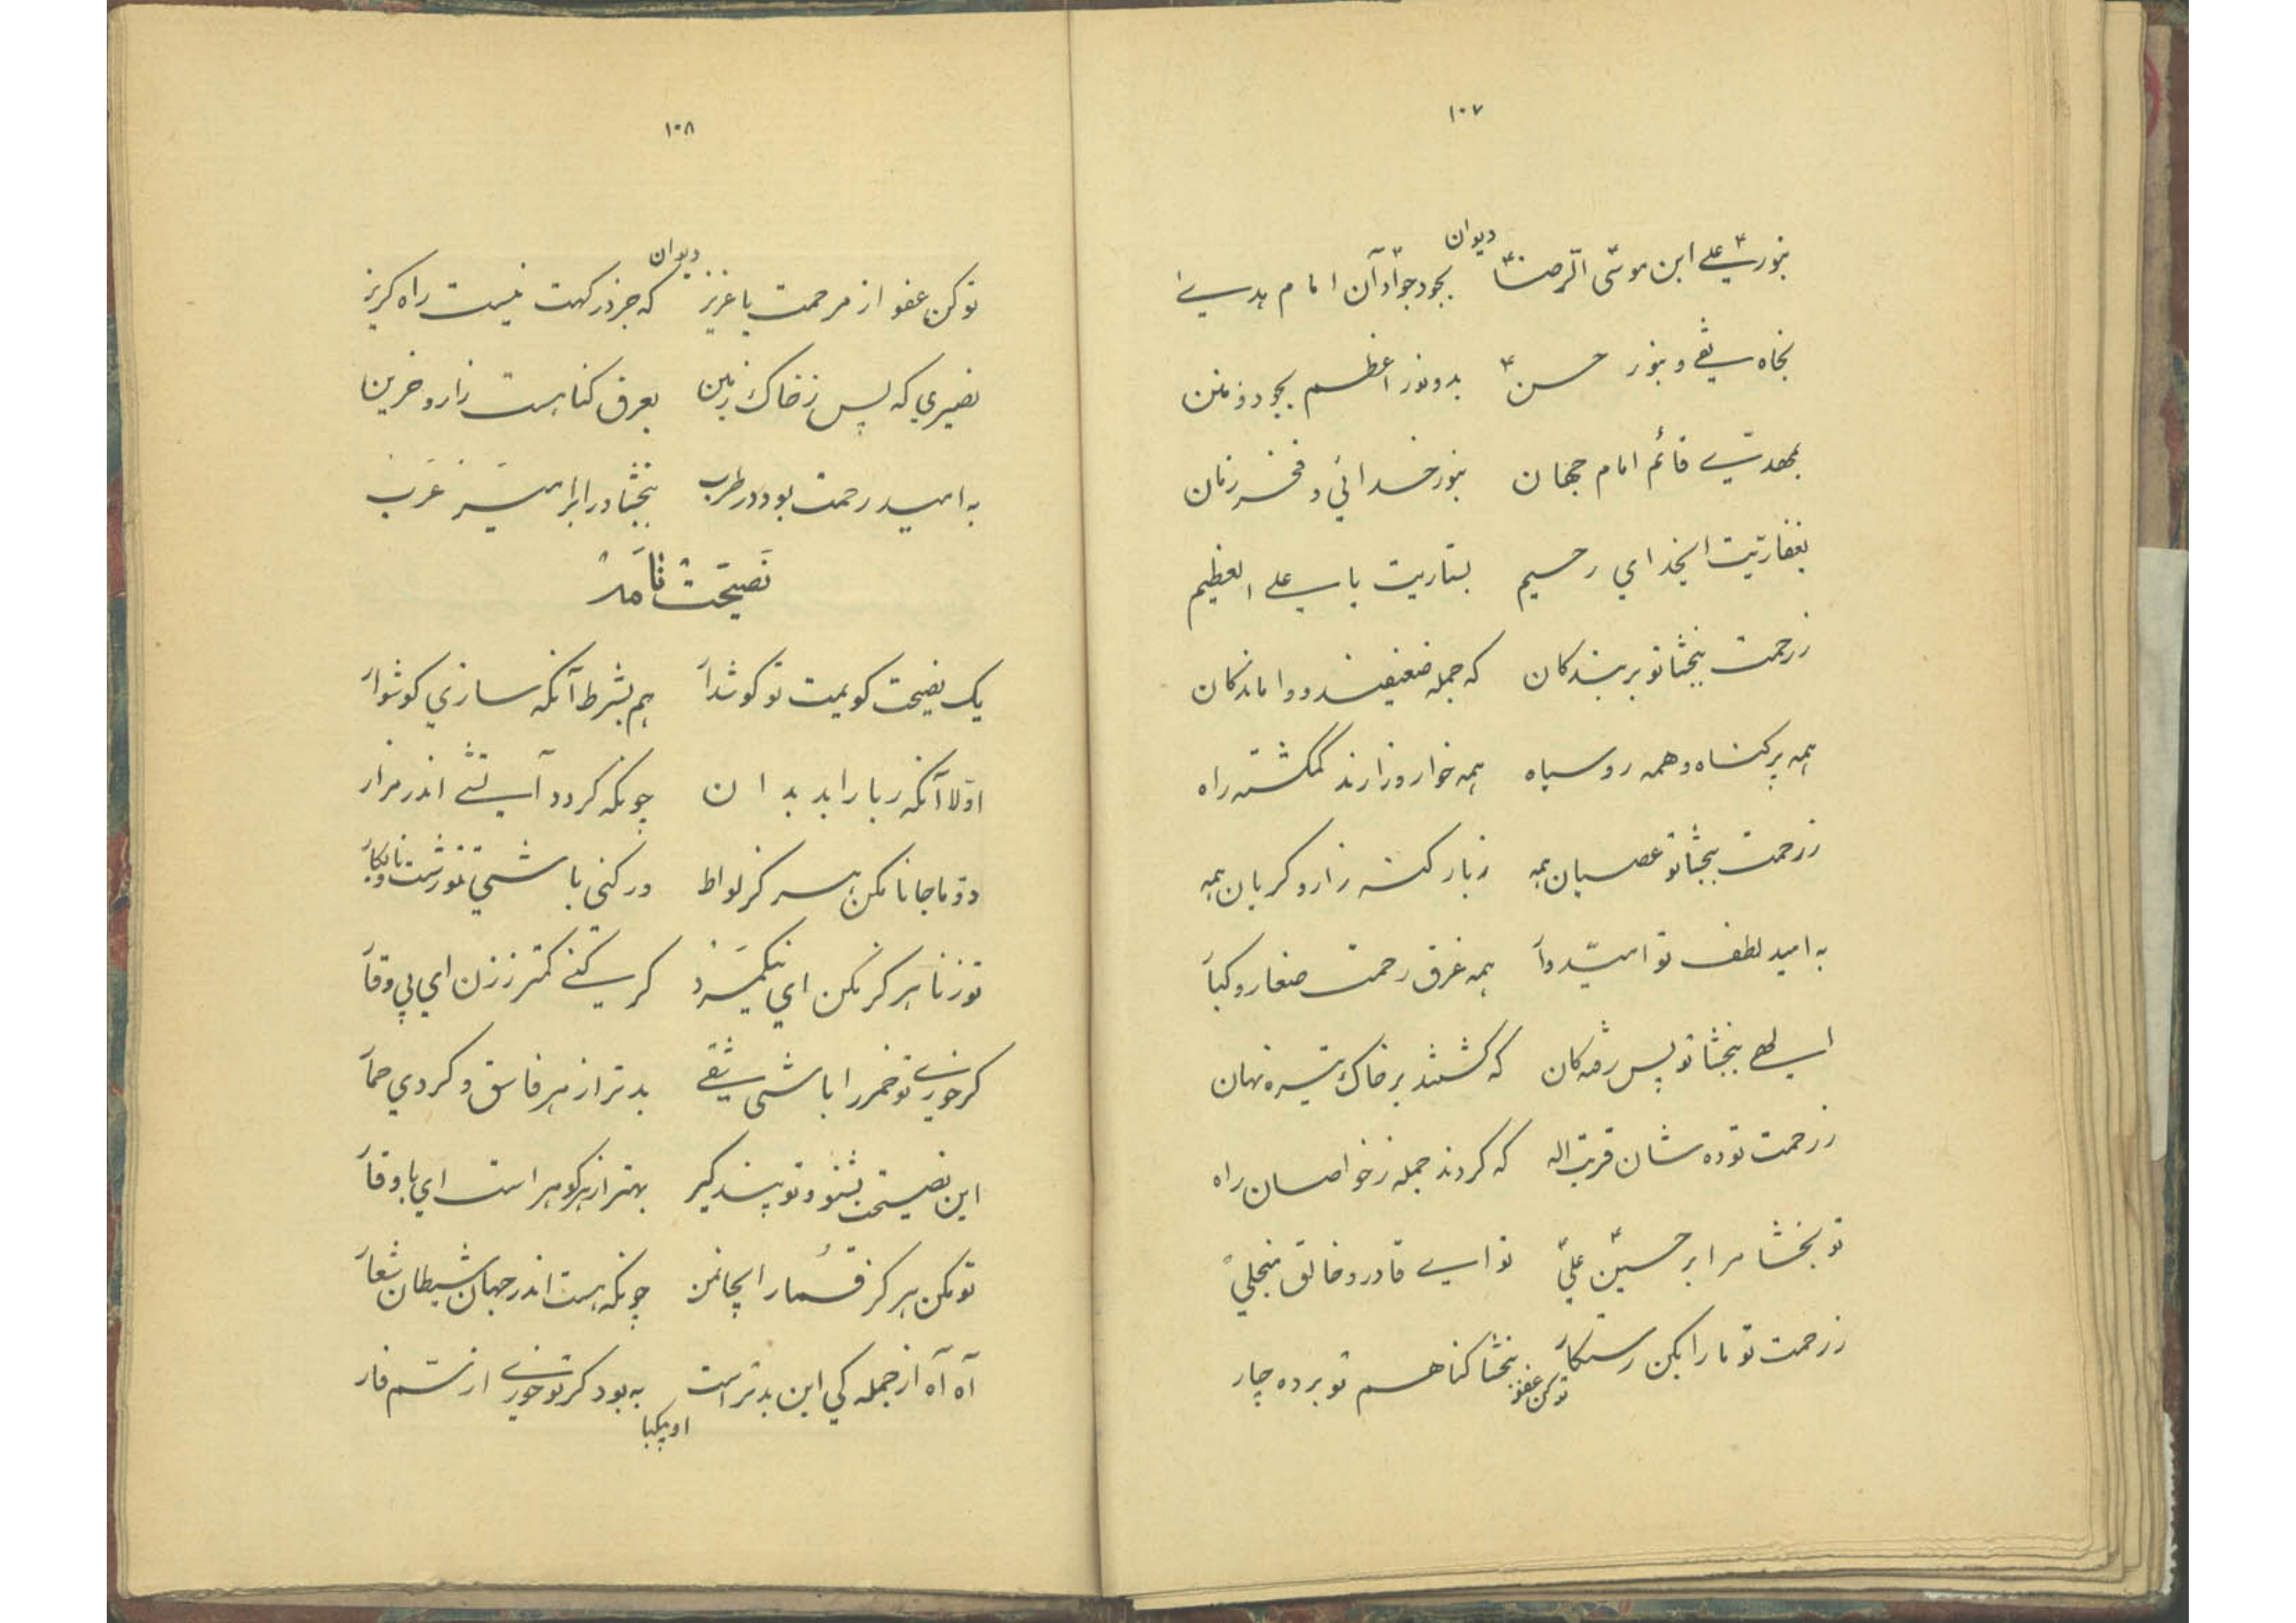 ۱۰۷
دیوان
بنور علی ابن موسی الرضا بجود جواد آن امام هدی
بجاه تقی و بنور حسن بدو نور اعظم بجود ذمنن
بمهدی قائم امام جهان بنور خدائی و فخر زمان
بغفاریت ایخدای رحیم بستاریت یا علی العظیم
ز رحمت ببخشا تو بر بندکان که جمله ضعیفند و واماندکان
همه پر کناه و همه رو سیاه همه خوار و زارند گمکشته راه
ز رحمت ببخشا تو عصیان همه ز بار کنه زار و کریان همه
به امید لطف تو امیدوار همه غرق رحمت صغار و کبار
الهی ببخشا تو پس رفه کان که کشتند بر خاک تیره نهان
ز رحمت تو ده شان قربت اله که کردند جمله ز خواصان راه
تو بخشا مرا بر حسین علی تو ای قادر و خالق منجلی
ز رحمت تو ما را بکن رستکار ببخشا کناهم تو برده چار
توکن عفو
۱۰۸
دیوان
توکن عفو از مرحمت یا عزیز که جز درکهت نیست راه کریز
نصیری که پس ز خاک زمین بعرق کناهست زار و حزین
به امید رحمت بود در طرب ببخشا ورا بر امیر عرب
نصیحت نامه
یک نصیحت کویمیت تو کوشدار هم بشرط آنکه سازی کوشوار
اولا آنکه ربا را بد بدان چونکه کردد آتشی اندر مزار
دوما جانا مکن هرکز لواط ور کنی باشی تو زشت و نابکار
تو زنا هرکز مکن ای نیکمرد کر کنی کمتر ز زن ای بی وقار
کر خوری تو خمر را باشی شقی بدتر از هر فاسق و کردی حمار
این نصیحت بشنو و تو پند کیر بهتر از هر کوهر است ای با وقار
تو مکن هرکز قمار ایجان من چونکه هست اندر جهان شیطان شعار
آه آه از جمله کی این بدتر است به بود کر تو خوری از سم فار